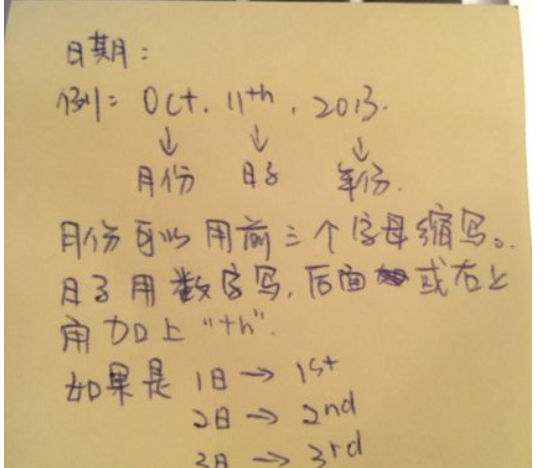 日期：
例：Oct. 11th, 2013.
↓ ↓ ↓
月份 日子 年份.
月份可以用前三个字母缩写。
日子用数字写，后面或右上
角加上“th”.
如果是 1日 → 1st
2日 → 2nd
3日 → 3rd